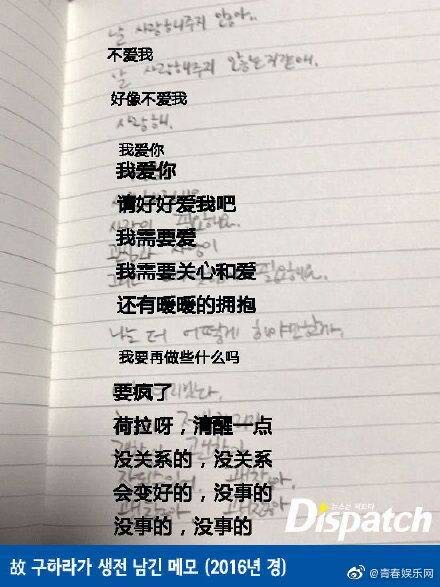 날 사랑해주지 않아..
不爱我
날 사랑해주지 않는것같애.
好像不爱我
사랑해.
我爱你
我爱你
请好好爱我吧
我需要爱
我需要关心和爱
필요해요.
还有暖暖的拥抱
나는 더 어떻게 해야만할까.
我要再做些什么吗
要疯了
荷拉呀，清醒一点
没关系的，没关系
会变好的，没事的
没事的，没事的
뉴스는 팩트다
Dispatch
故 구하라가 생전 남긴 메모 (2016년 경)
@青春娱乐网